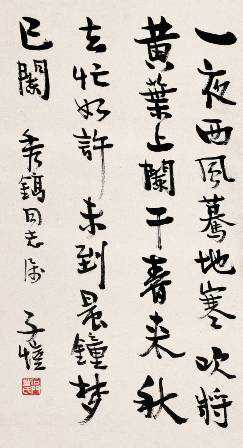 一夜西風驀地寒吹將
黃葉上闌干春來秋
去忙如許未到晨鐘梦
已闌 同志 子愷